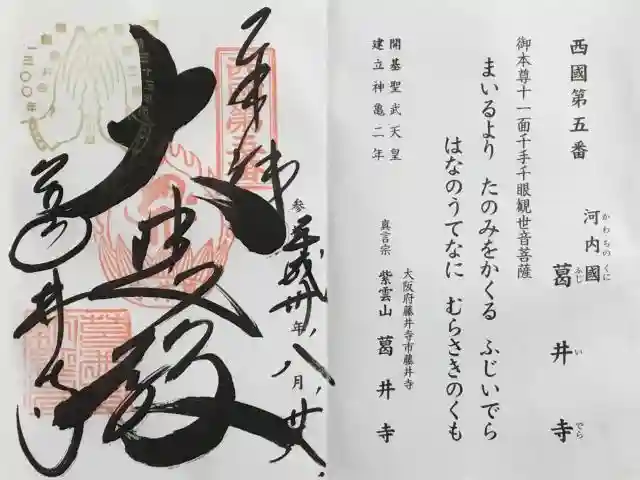 西國第五番
河内國
かわちのくに
葛井寺
ふじいでら
御本尊十一面千手千眼観世音菩薩
まいるより たのみをかくる ふじいでら
はなのうてなに むらさきのくも
開基聖武天皇
建立神亀二年
大阪府藤井寺市藤井寺
真言宗 紫雲山 葛井寺
奉拝
参 平成卅年八月廿八
大悲殿
葛井寺
西国第五番
一三〇〇年